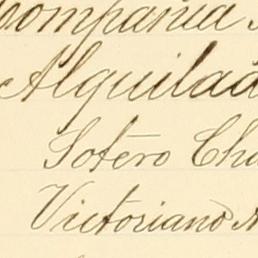 Compañia
Alquilad
Sotero Cha
Victoriano A